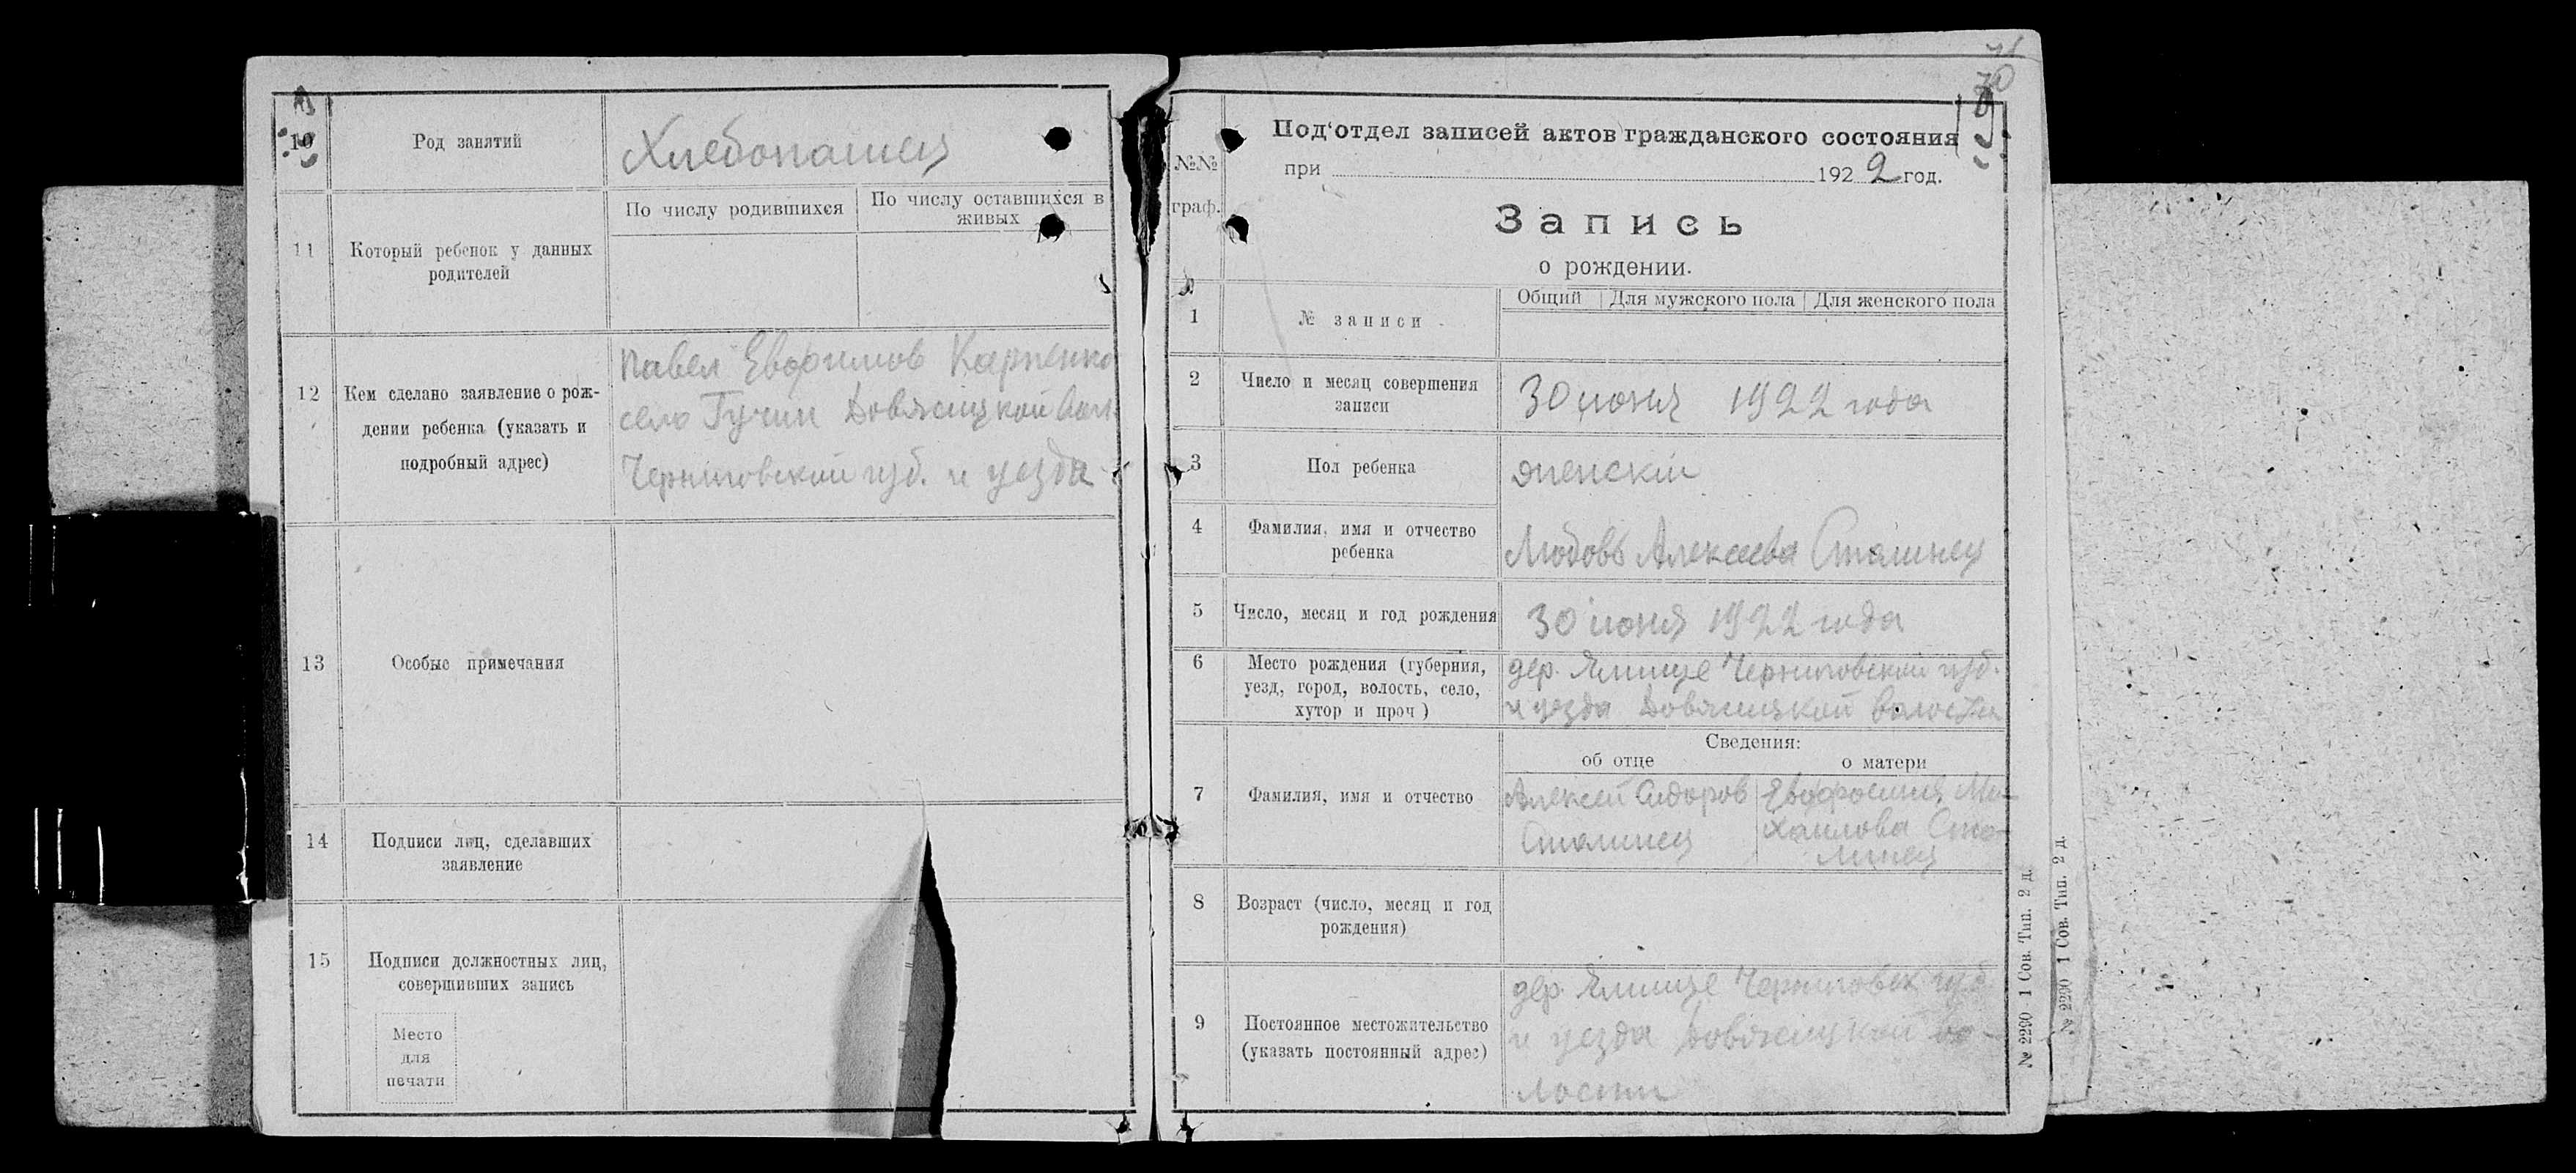 10 Род занятий Хлебопашец
11 Который ребенок у данных
родителей
По числу родившихся
По числу оставшихся в
живых
12 Кем сделано заявление о рож-
дении ребенка (указать и
подробный адрес)
Павел Евфимов Карпенко
село Гучин Довжицкой вол.
Черниговский губ. и уезда
13 Особые примечания
14 Подписи лиц, сделавших
заявление
15 Подписи должностных лиц,
совершивших запись
Место
для
печати
70
№№
граф.
Под'отдел записей актов гражданского состояния
при 1922 год.
Запись
о рождении.
1 № записи
Общий Для мужского пола Для женского пола
2 Число и месяц совершения
записи
30 июня 1922 года
3 Пол ребенка женскiй
4 Фамилия, имя и отчество
ребенка
Любовь Алексеева
5 Число, месяц и год рождения 30 июня 1922 года
6 Место рождения (губерния,
уезд, город, волость, село,
хутор и проч)
дер. Ямище Черниговской губ.
и уезда Довжицкой волости
Сведения:
об отце о матери
7 Фамилия, имя и отчество
Алексей Сидоров
Евфросиния Ми-
хайлова
8 Возраст (число, месяц и год
рождения)
9 Постоянное местожительство
(указать постоянный адрес)
дер. Ямище Черниговск губ
и уезда Довжицкой во-
лости
№ 2290 1 Сов. Тип. 2 д.
№ 2290 1 Сов. Тип. 2 д.